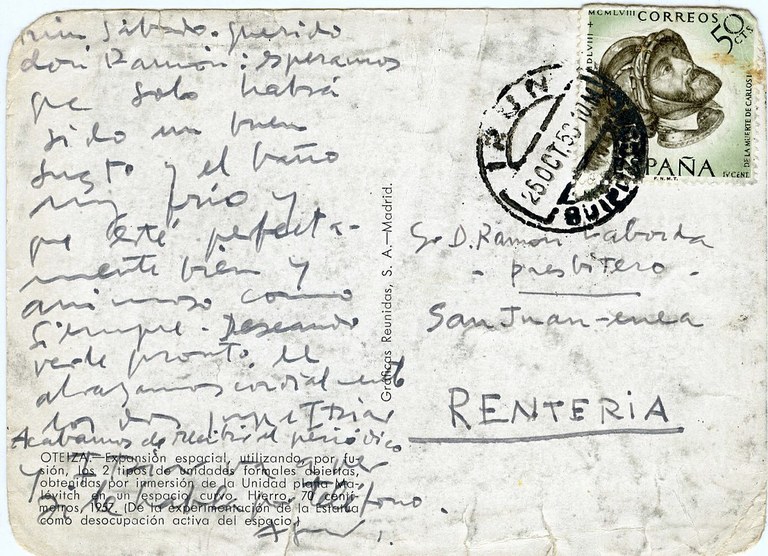 Irún Sábado. Querido
don Ramón: esperamos
que solo habrá
sido un buen
susto y el baño
muy frío y
que esté perfecta-
mente bien y
animoso como
siempre. Deseando
verle pronto le
abrazamos cordialmente
los dos Itziar
Acabamos de recibir el periódico
y
si te hablo por teléfono.
OTEIZA.—Expansión espacial, utilizando, por fu-
sión, los 2 tipos de unidades formales abiertas,
obtenidas por inmersión de la Unidad plana Ma-
lévitch en un espacio curvo. Hierro, 70 centí-
metros, 1957. (De la experimentación de la Estatua
como desocupación activa del espacio.)
Gráficas Reunidas, S. A.—Madrid.
MCMLVIII CORREOS
50 CTS
DE LA MUERTE DE CARLOS I
IV CENT.
ESPAÑA
F.N.M.T.
IRUN
26 OCT. 58 10M
GUIPUZCOA
Sr D. Ramón Laborda
- presbítero -
San Juan-enea
RENTERIA